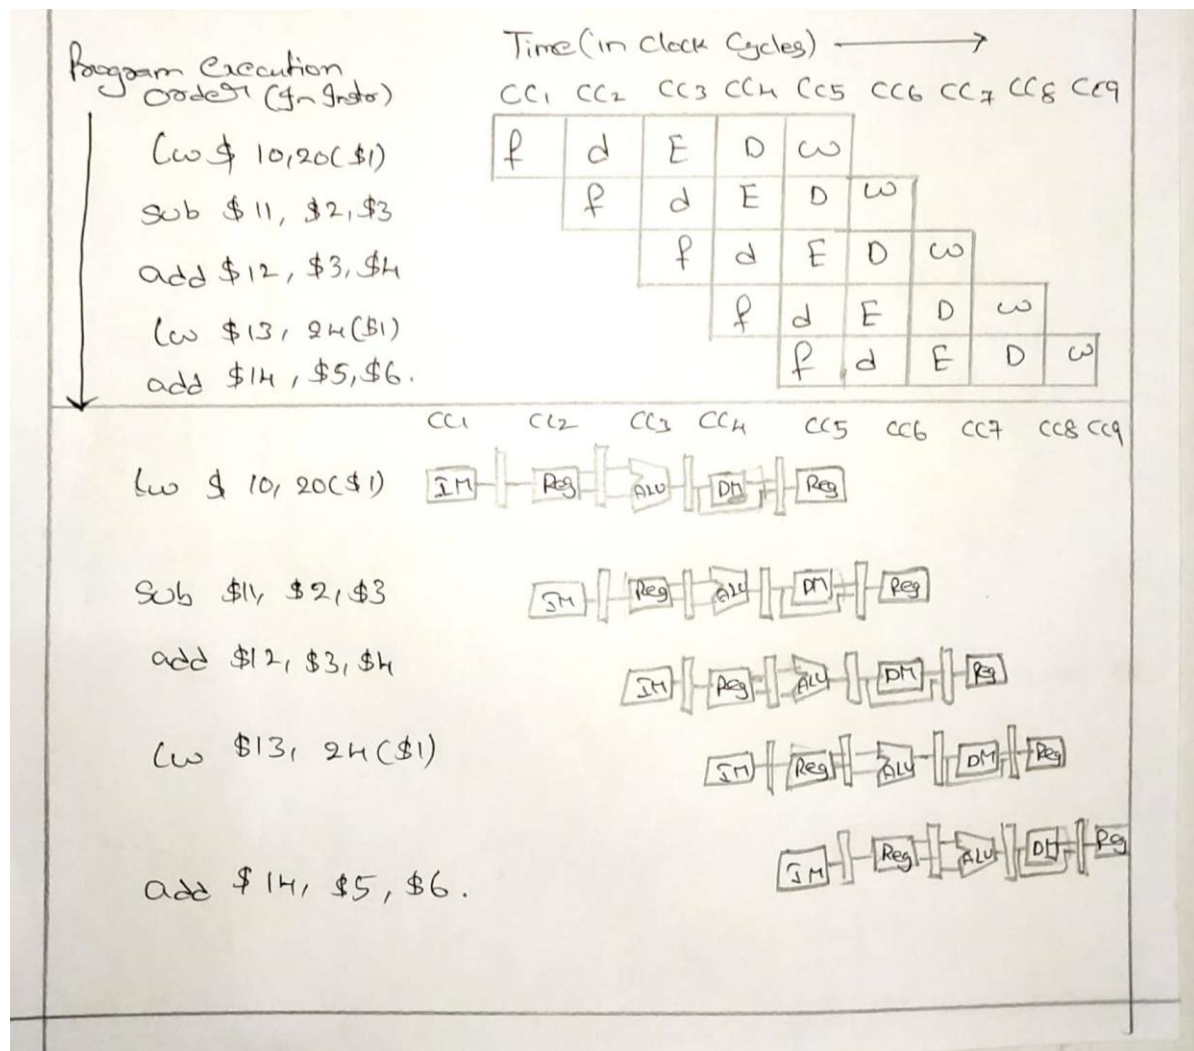 Time (in Clock Cycles)
Program Execution
order (In Instr)
CC1 CC2 CC3 CC4 CC5 CC6 CC7 CC8 CC9
lw $ 10,20($1) f d E D w
sub $11, $2,$3 f d E D w
add $12, $3,$4 f d E D w
lw $13, 24($1) f d E D w
add $14, $5,$6. f d E D w
CC1 CC2 CC3 CC4 CC5 CC6 CC7 CC8 CC9
lw $ 10, 20($1) IM Reg ALU DM Reg
Sub $11, $2,$3 IM Reg ALU DM Reg
add $12, $3,$4 IM Reg ALU DM Reg
lw $13, 24($1) IM Reg ALU DM Reg
add $14, $5, $6. IM Reg ALU DM Reg